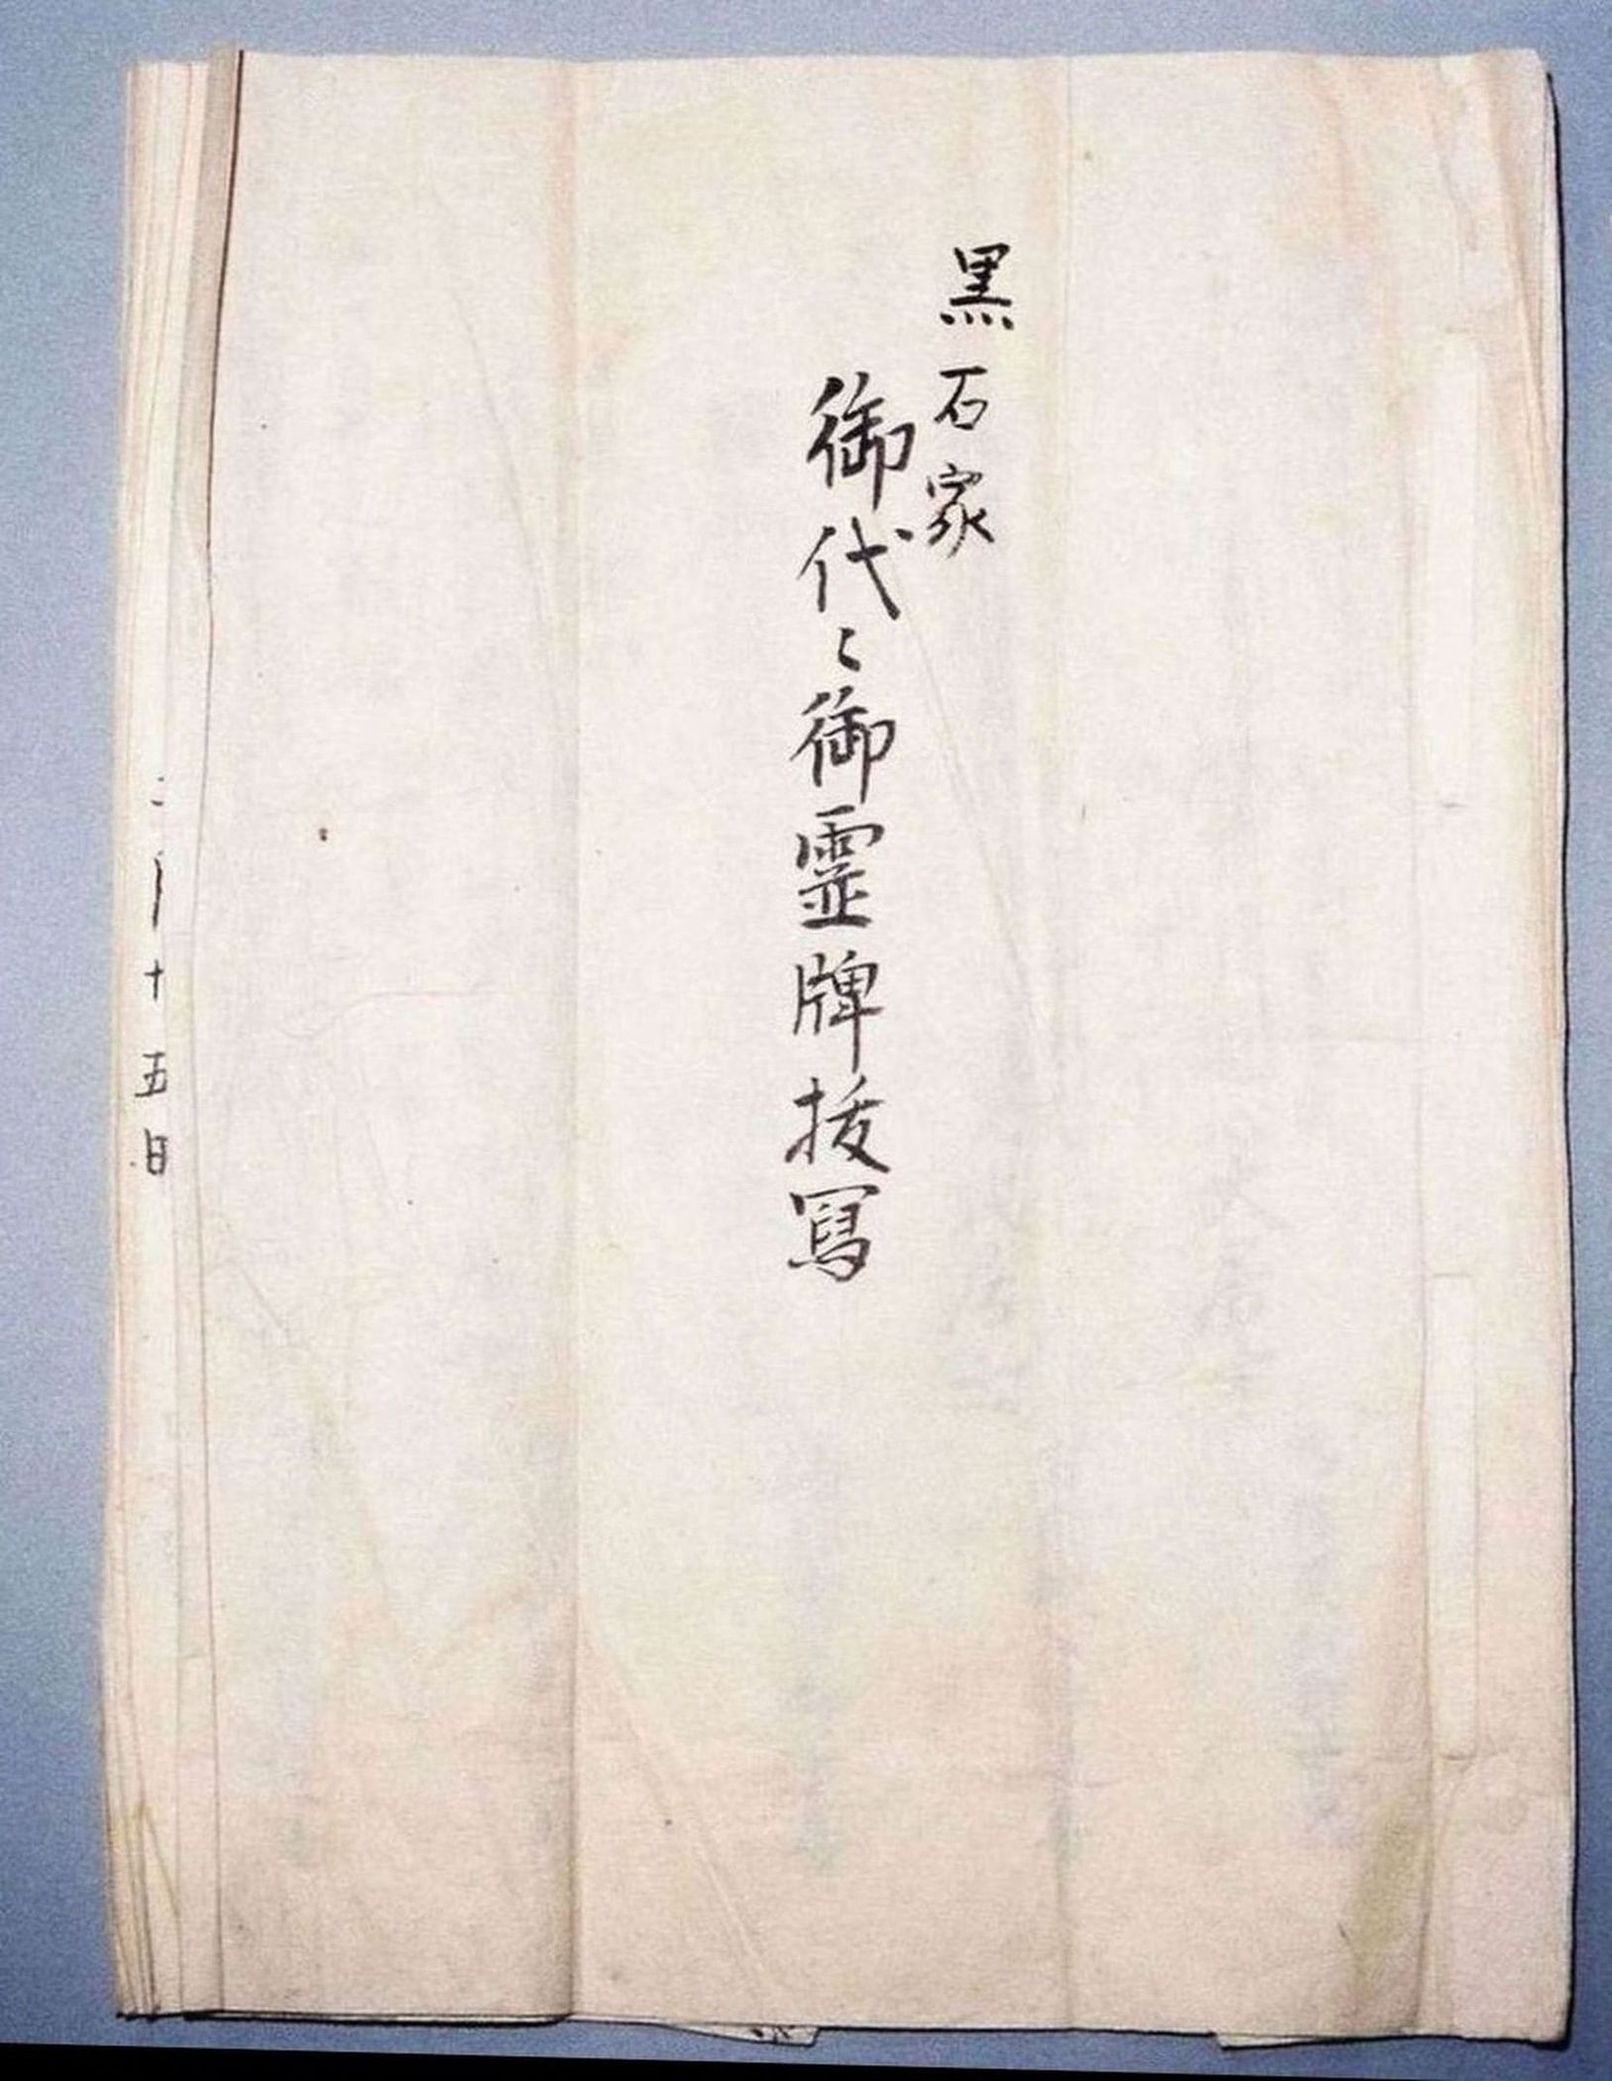 黒石家
御代々御霊牌抜寫
十五日